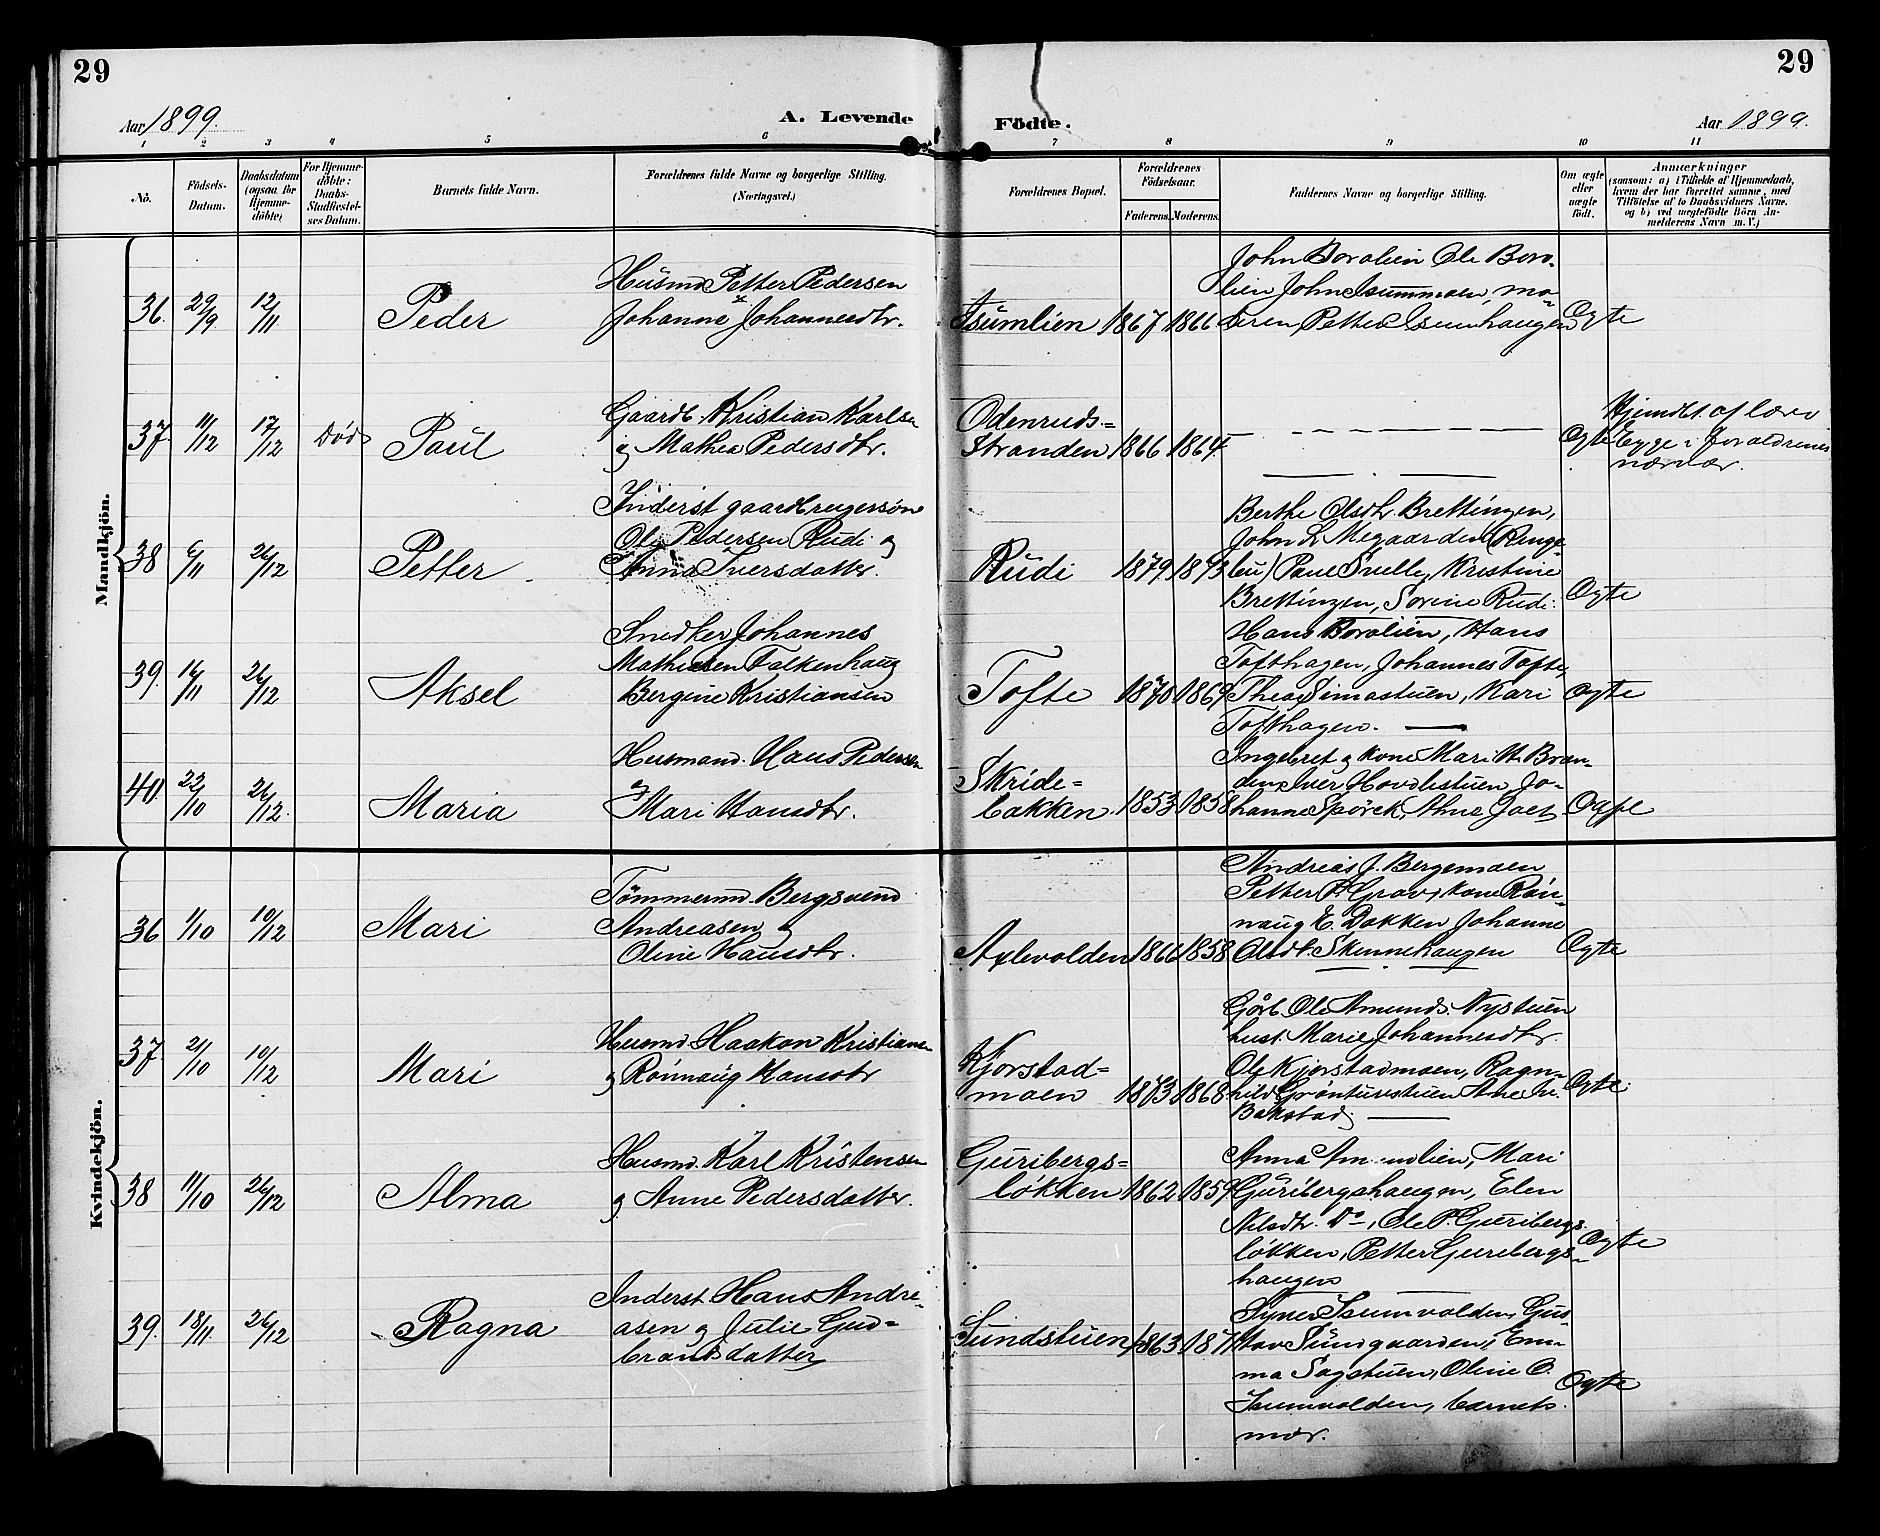 29
29
Aar 1899.
A. Levende
Födte.
Aar 1899.
1 2 3 4 5 6 7 8 9 10 11
No.
Födsels-
Datum.
Daabsdatum
(ogsaa for
Hjemme-
döbte)
For Hjemme-
döbte:
Daabs-
Stadfæstel-
ses Datum.
Barnets fulde Navn.
Forældrenes fulde Navne og borgerlige Stilling.
(Næringsvei.)
Forældrenes Bopæl.
Forældrenes
Födselsaar.
Faderens. Moderens.
Faddernes Navne og borgerlige Stilling.
Om ægte
eller
uægte
født.
Anmærkninger
(saasom: a) i Tilfælde af Hjemmedaab,
hvem der har forrettet samme, med
Tilföielse af to Daabsvidners Navne.
og b) ved uægtefödte Börn An-
melderens Navn m. V.)
Mandkjön.
36. 29/9 12/11
Peder
Husmd Petter Pedersen
Johanne Johannesdtr.
Isumlien 1867 1866
John Boralien Ole Bora-
lien John Isummoen, mo-
deren, Petter Isumhaugen
Ogte
37. 11/12 17/12 Død
Paul
Gaardb. Kristian Karlsen
og Mathea Pedersdtr.
Odenruds-
stranden 1866 1864
Ogte
Hjemdbt af lærer
Bygge i forældrenes
nærvær.
38 6/11 26/12
Petter
Inderst gaardbrugersøn
Ole Pedersen Rudi og
Anna Iversdatter.
Rudi 1879 1873
Berthe Olsdtr Brettingen,
John L Megaarden (Ringe-
bu) Paul Svelle, Kristine
Brettingen, Sorine Rudi.
Ogte
39. 16/11 26/12
Aksel
Snedker Johannes
Mathiesen Falkenhaug
Bergine Kristiansen
Tofte 1870 1869
Hans Boralien, Hans
Tofthagen, Johannes Tofte,
Thea Simastuen, Kari
Tofthagen.
Ogte
40. 22/10 26/12.
Maria
Husmand. Hans Pedersen
og
Mari Hansdtr.
Skride-
bakken. 1853 1858
Ingebret og kone Mari H. Bran-
den, Iver Hovdestuen, Jo-
hanne Spörck, Anne
Kvindekjön.
36 1/10 10/12
Mari
Tömmermd. Bergsvend
Andreasen og
Oline Hansdtr.
Axlevolden 1866 1858
Andreas J. Bergemoen
Petter P. Grav, kone Rön-
naug E. Dokken Johanne
Olsdtr. Skinnehaugen
Ogte
37 2/10 10/12
Mari
Husmd Haakon Kristiansen
og Rönnaug Hansdtr
Kjorstad-
moen 1873 1868
Gårb. Ole Amunds. Nystuen
hust. Marie Johannesdtr.
Ole Kjorstadmoen, Ragn-
hild Gröntuvstuen Ane
Bakstad
Ogte.
38 11/10 26/12
Alma
Husmd. Karl Kristensen
og Anne Pedersdatter.
Guribergs-
lökken 1862 1859
Anna Amundlien, Mari
Guribergshaugen, Elen
Nilsdtr. Do, Ole P. Guribergs-
lökken, Petter Guribergs-
haugen
Ogte
39. 18/11 26/12
Ragna
Inderst Hans Andre-
asen og Julie Gud-
brandsdatter
Sundstuen 1863 1871
Syver Isumvolden, Gus-
tav Sundgaarden, Em-
ma Sagstuen, Oline O.
Isumvolden, barnets
mor.
Ogte